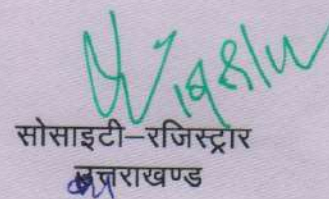 सोसाइटी–रजिस्ट्रार
उत्तराखण्ड